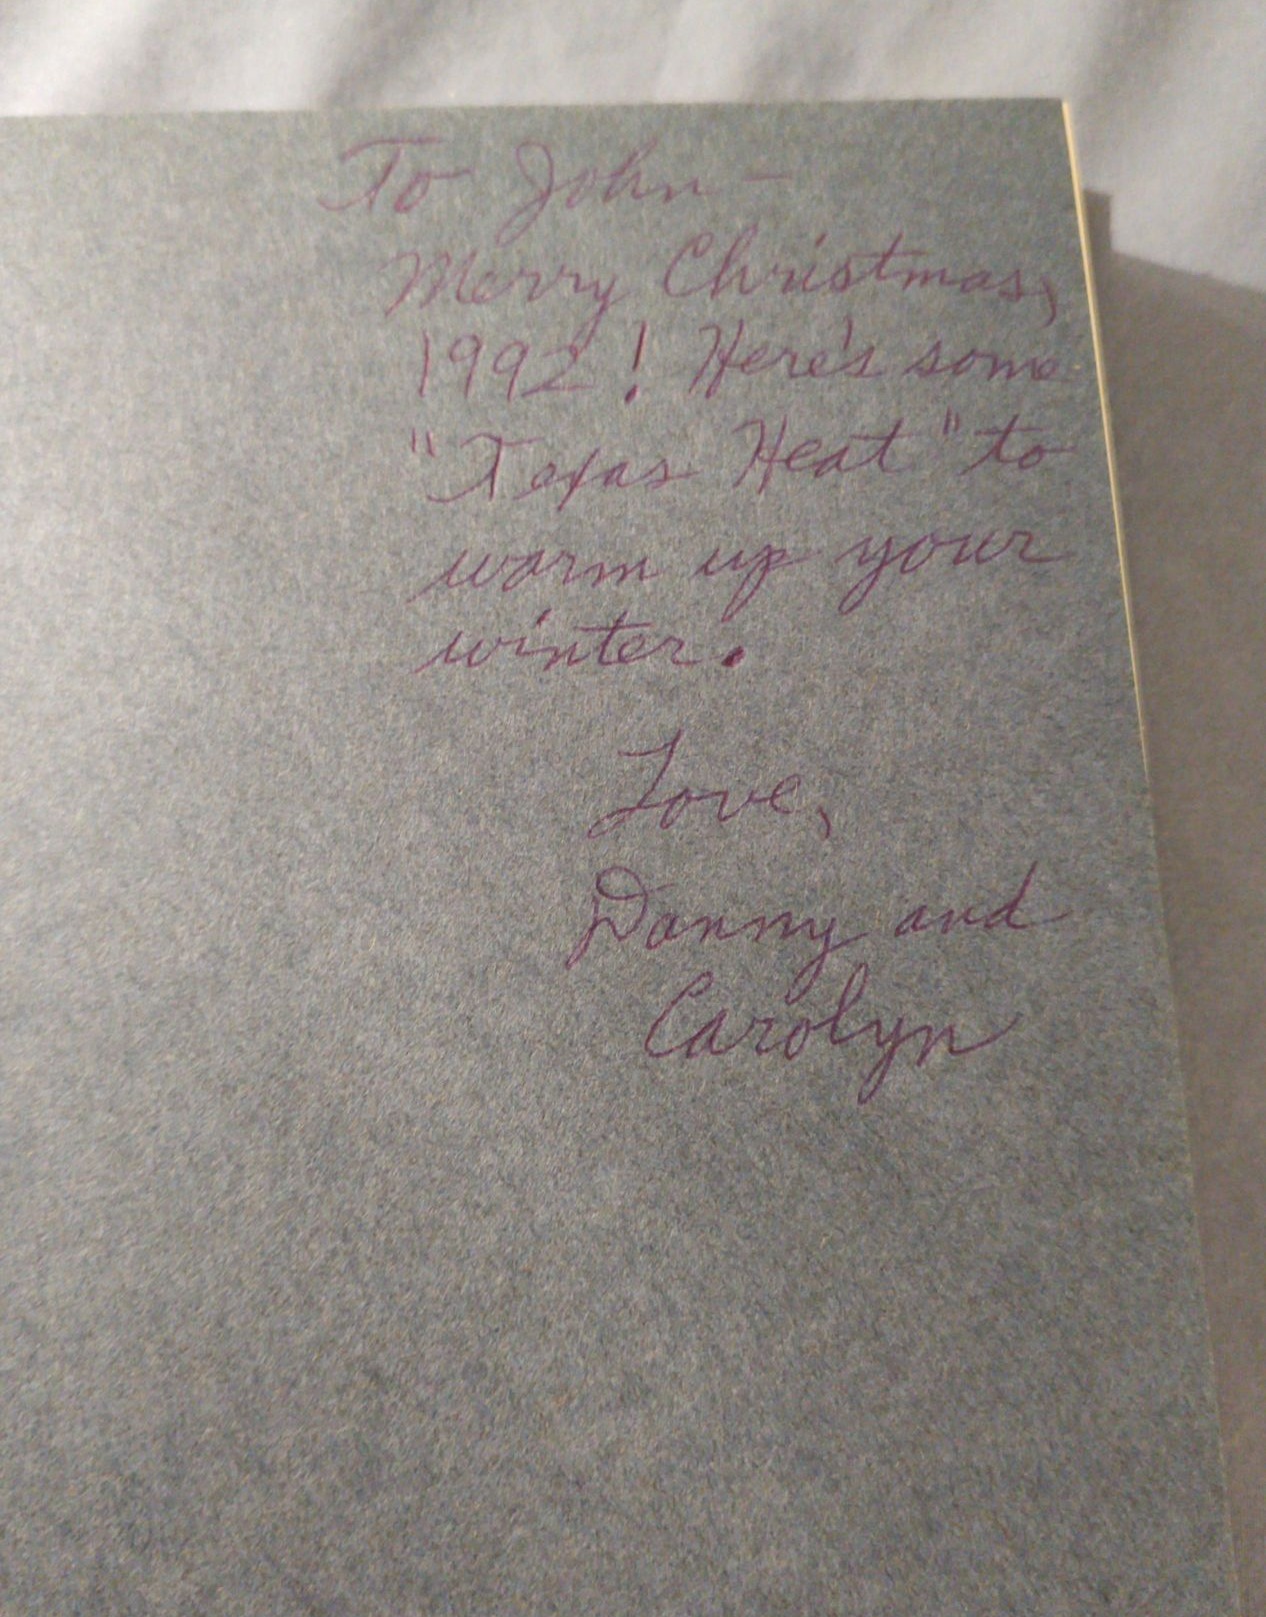 To John -
Merry Christmas,
1992! Here's some
"Texas Heat" to
warm up your
winter.
Love,
Danny and
Carolyn